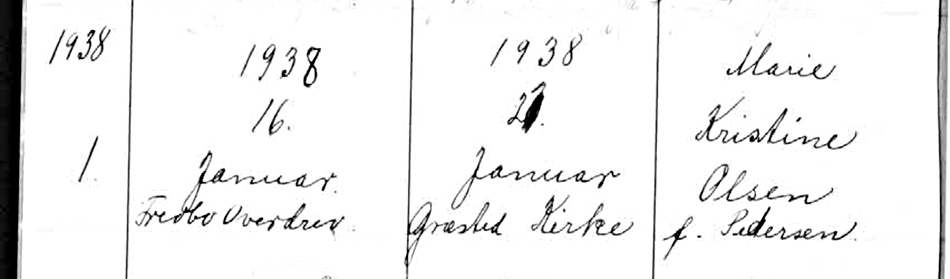 1938
1.
1938
16.
Januar.
Fredbo Overdrev.
1938
Januar
Græsted Kirke
Marie
Kristine
Olsen
f. Pedersen.